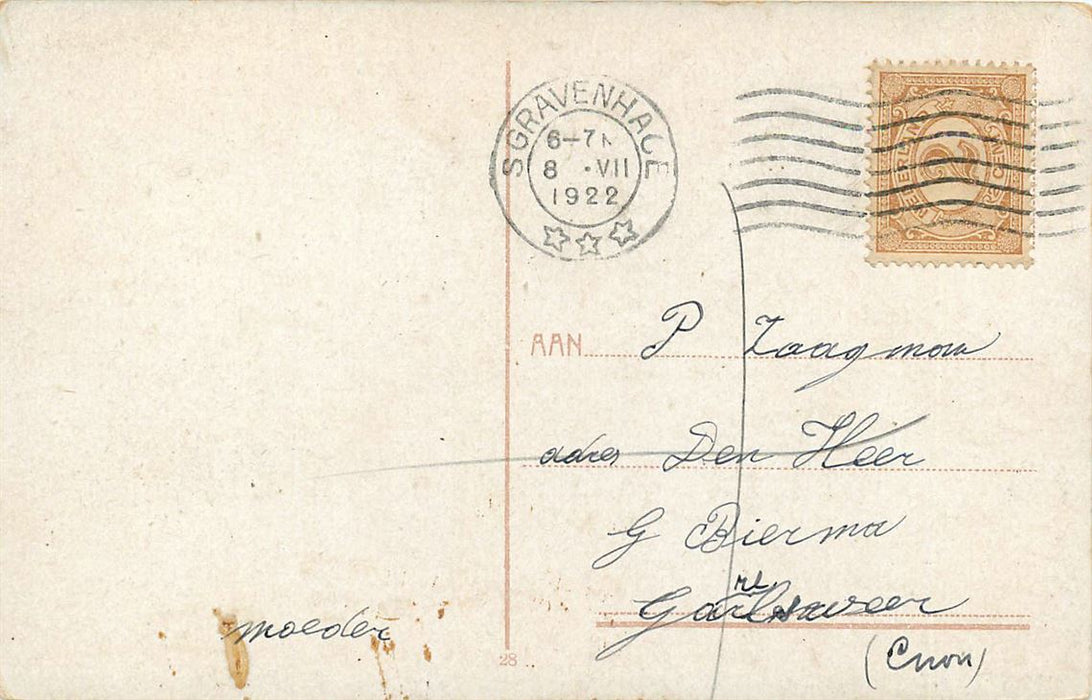 SGRAVENHAGE
6-7N
8 · VII
1922
AAN P Zaagman
adres Den Heer
G Bierma
Garrelsweer
moeder
28